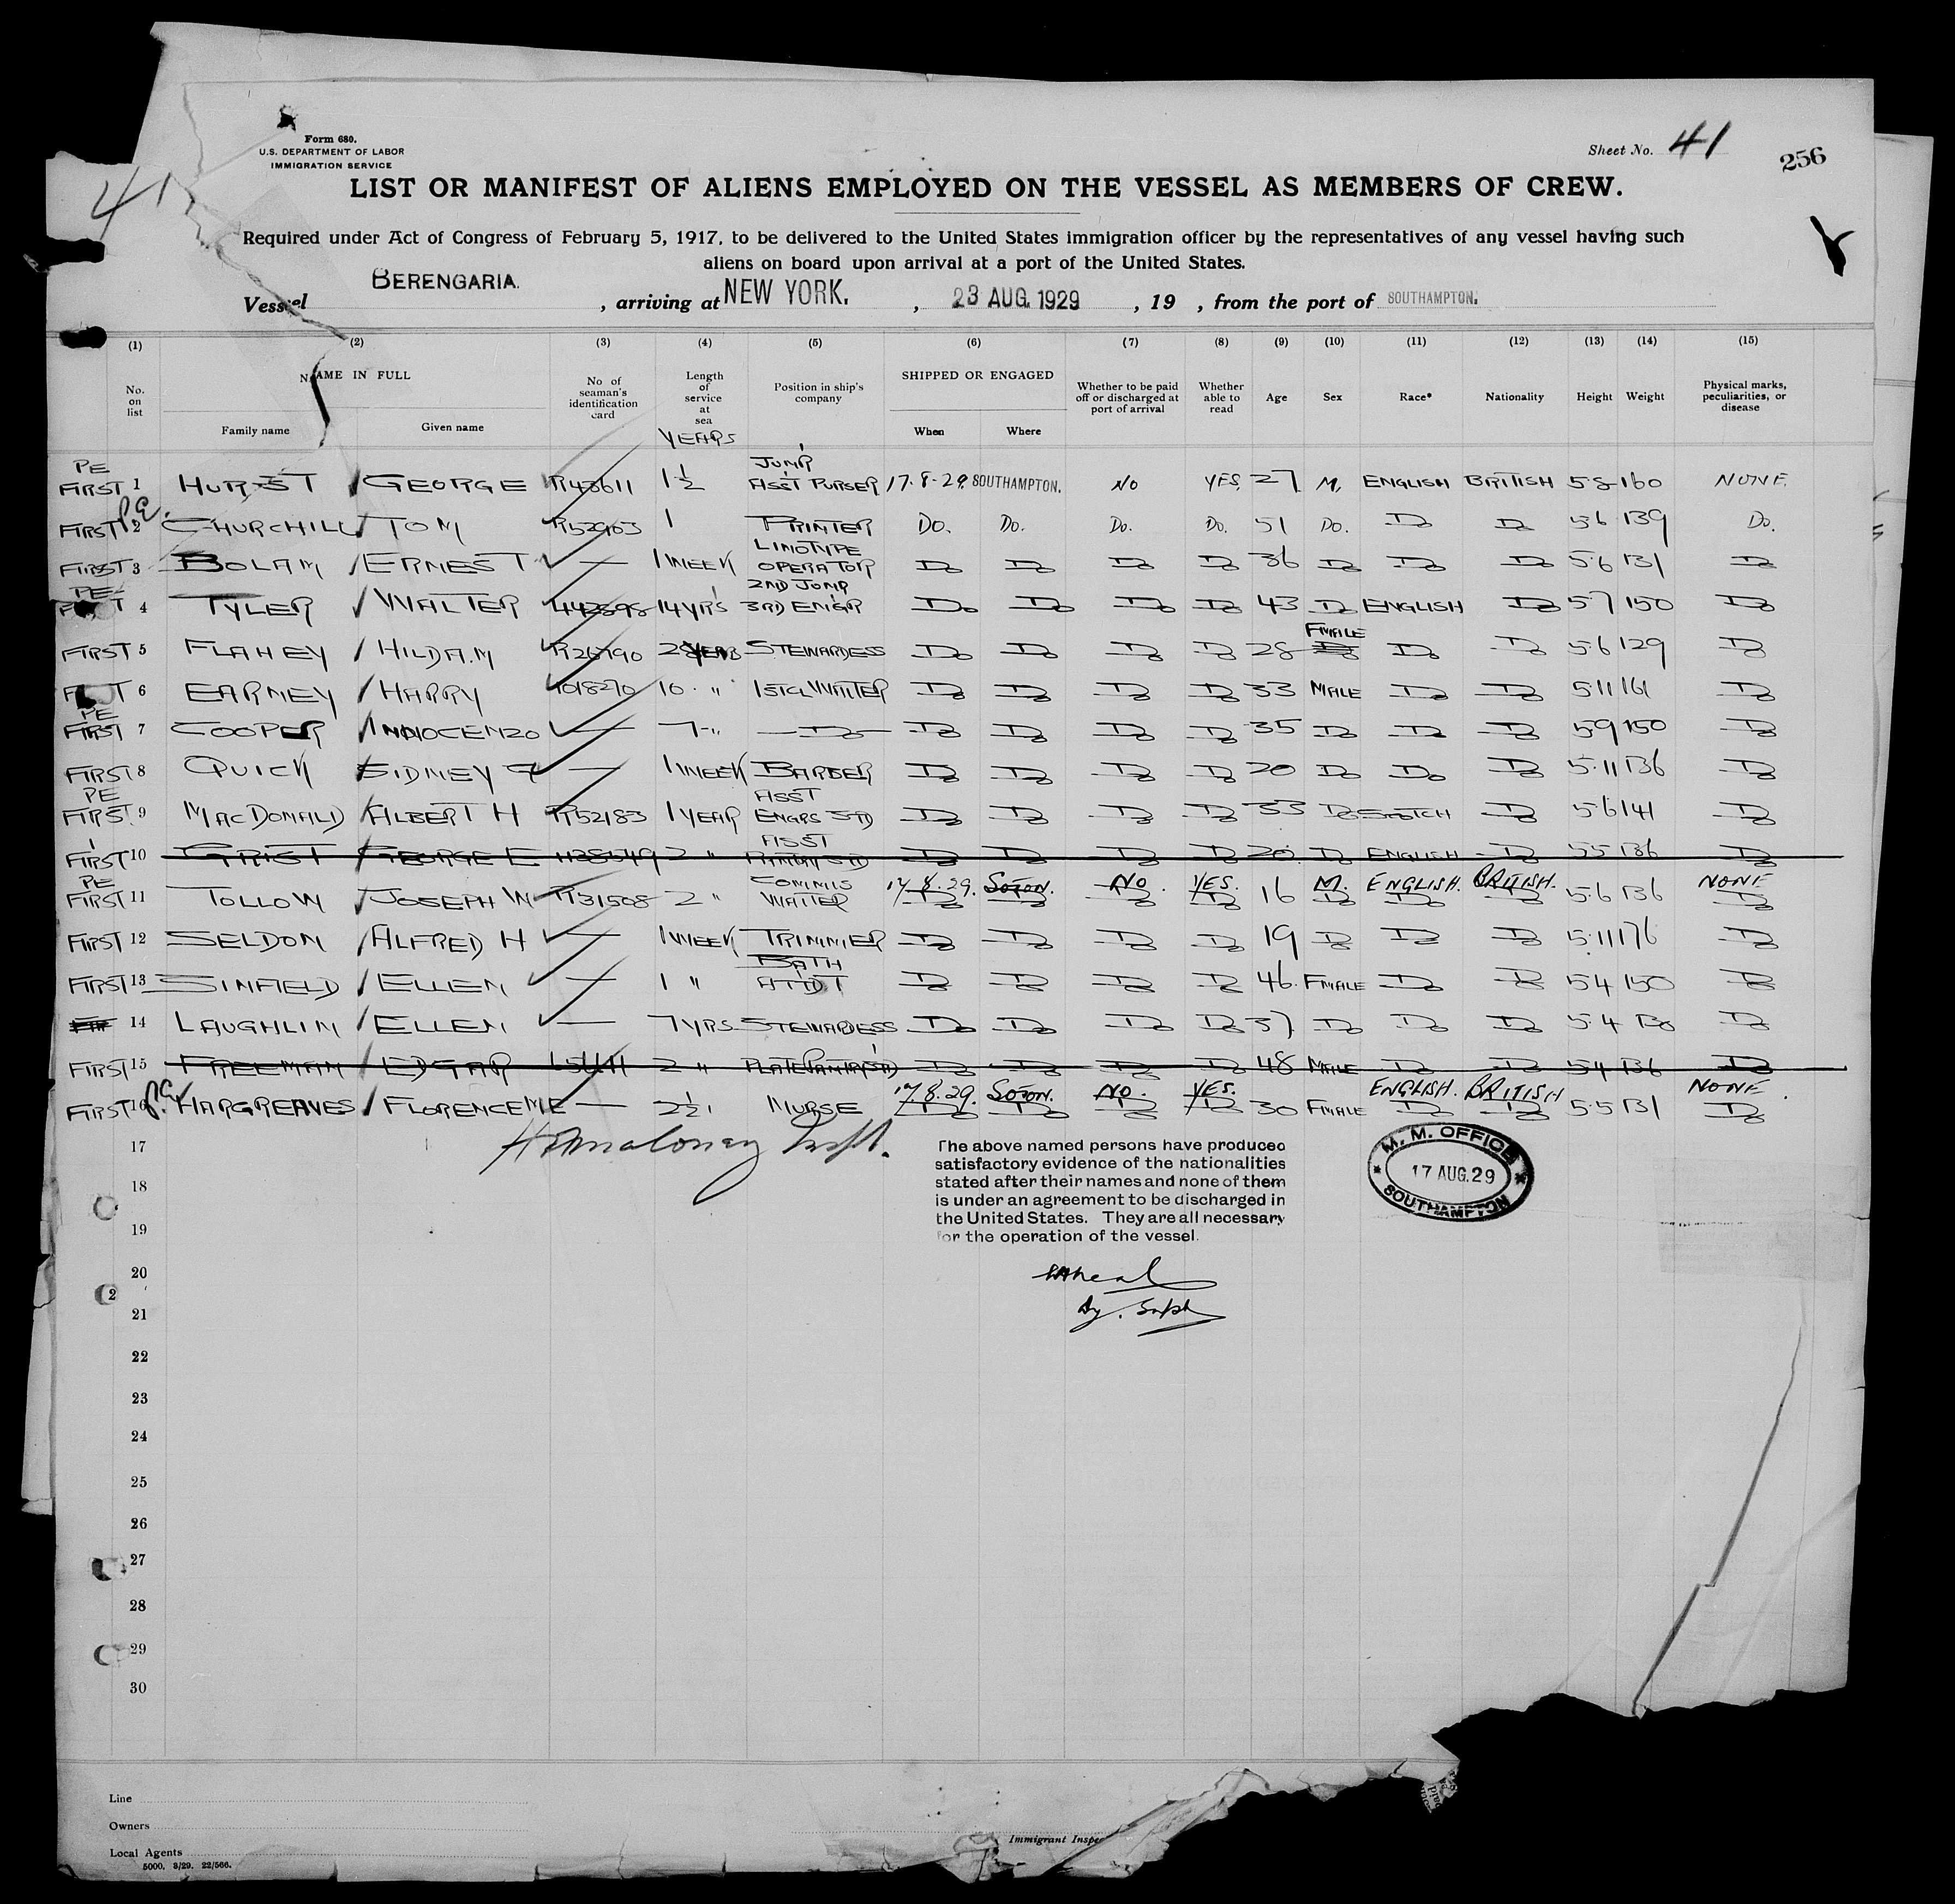 Form 680.
U.S. DEPARTMENT OF LABOR
IMMIGRATION SERVICE
Sheet No. 41
256
41
LIST OR MANIFEST OF ALIENS EMPLOYED ON THE VESSEL AS MEMBERS OF CREW.
Required under Act of Congress of February 5, 1917, to be delivered to the United States immigration officer by the representatives of any vessel having such
aliens on board upon arrival at a port of the United States.
Vessel BERENGARIA. , arriving at NEW YORK. , 23 AUG. 1929 , 19 , from the port of SOUTHAMPTON.
(1) (2) (3) (4) (5) (6) (7) (8) (9) (10) (11) (12) (13) (14) (15)
No. on list NAME IN FULL Family name Given name No of seaman's identification card Length of service at sea YEARS Position in ship's company SHIPPED OR ENGAGED When Where Whether to be paid off or discharged at port of arrival Whether able to read Age Sex Race* Nationality Height Weight Physical marks, peculiarities, or disease
PE FIRST 1 HURST GEORGE R43611 1½ JUNR ASST PURSER 17.8.29. SOUTHAMPTON. NO YES. 27 M. ENGLISH BRITISH 5-8 160 NONE.
FIRST 2 CHURCHILL TOM R52963 1 PRINTER DO. DO. DO. DO. 51 DO. Do Do 5 6 139 DO.
FIRST 3 BOLAM ERNEST — 1 WEEK LINOTYPE OPERATOR Do Do Do Do 36 Do Do Do 5.6 131 Do
PE 4 TYLER WALTER 14 YRS 2ND JUNR 3RD ENGR Do Do Do Do 43 Do ENGLISH Do 5 7 150 Do
FIRST 5 FLAHEY HILDA.M R26790 STEWARDESS Do Do Do Do 28 FMALE Do Do 5.6 129 Do
6 EARNEY HARRY 1018270 10 " 1ST CL WAITER Do Do Do Do 33 MALE Do Do 5.11 161 Do
PE FIRST 7 COOPER INNOCENZO — 7 " Do Do Do Do Do 35 Do Do Do 5 9 150 Do
FIRST 8 QUICK SIDNEY G — 1 WEEK BARBER Do Do Do Do 20 Do Do Do 5.11 136 Do
PE FIRST 9 MACDONALD ALBERT H R52183 1 YEAR ASST ENGRS STD Do Do Do Do 33 Do SCOTCH Do 5 6 141 Do
FIRST 10 GRIST GEORGE E 2 " ASST Do Do Do Do 20 Do ENGLISH Do 5 5 136 Do
PE FIRST 11 TOLLOW JOSEPH W R31508 2 " COMMIS WAITER 17.8.29. SOTON. NO. YES. 16 M. ENGLISH. BRITISH. 5.6 136 NONE
FIRST 12 SELDON ALFRED H — 1 WEEK TRIMMER Do Do Do Do 19 Do Do Do 5.11 176 Do
FIRST 13 SINFIELD ELLEN — 1 " BATH ATTDT Do Do Do Do 46. FMALE Do Do 5 4 150 Do
14 LAUGHLIN ELLEN — 7 YRS STEWARDESS Do Do Do Do 37 Do Do Do 5.4 Do
FIRST 15 FREEMAN EDGAR 2 " Do Do Do Do 48 MALE Do Do 5 4 136 Do
FIRST 16 HARGREAVES FLORENCE — 2½ NURSE 17.8.29. SOTON. NO. YES. 30 FMALE ENGLISH. BRITISH 5.5 131 NONE.
17
The above named persons have produced
satisfactory evidence of the nationalities
stated after their names and none of them
is under an agreement to be discharged in
the United States. They are all necessary
for the operation of the vessel.
M. M. OFFICE
17 AUG. 29
SOUTHAMPTON
18
19
20
21
22
23
24
25
26
27
28
29
30
Line
Owners
Local Agents
5000. 8/29. 22/566.
Immigrant Inspec